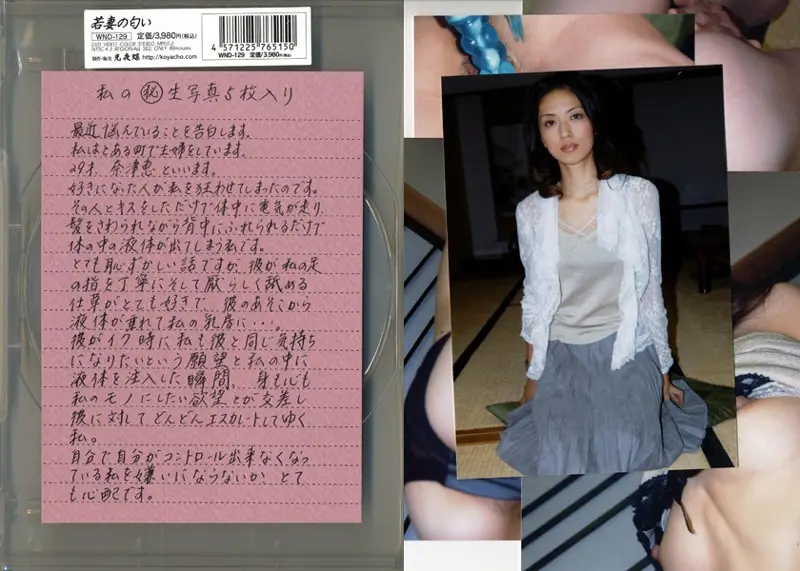 若妻の匂い
WND-129 定価/3,980円(税込)
DVD VIDEO COLOR STEREO MPEG2
制作・販売 光夜蝶 http://koyacho.com
4 571225 765150
WND-129 定価/3,980円(税込)
私の㊙生写真5枚入り
最近悩んでいることを告白します。
私はとある町で主婦をしています。
29才、奈津恵といいます。
好きになった人が私を狂わせてしまったのです。
その人とキスをしただけで体中に電気が走り、
髪をさわられながら背中にふれられるだけで
体の中の液体が出てしまう私です。
とても恥ずかしい話ですが、彼が私の足
の指を丁寧にそして厭らしく舐める
仕草がとても好きで、彼のあそこから
液体が垂れて私の乳房に・・・。
彼がイク時に私も彼と同じ気持ち
になりたいという願望と私の中に
液体を注入した瞬間、身も心も
私のモノにしたい欲望とが交差し
彼に対してどんどんエスカレートしてゆく
私。
自分で自分がコントロール出来なくなっ
ている私を嫌いにならないか、とて
も心配です。